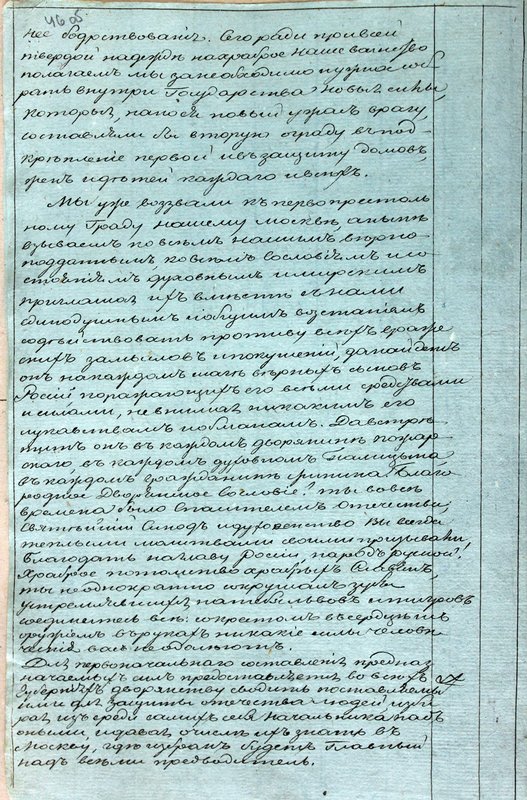 46 об
нее бодрствованія. Сего ради при всей
твердой надеждѣ на храброе наше воинство
полагаемъ мы за необходимо нужное соб
рать внутри Государства новыя силы,
которыя, нанося новый ужасъ врагу,
составляли бы вторую ограду въ под
крѣпленіе первой и въ защиту домовъ,
женъ и дѣтей каждаго и всѣхъ.
Мы уже воззвали къ первопрестоль
ному Граду нашему Москвѣ, а нынѣ
взываемъ ко всѣмъ нашимъ вѣрно
подданнымъ ко всѣмъ сословіямъ и со
стояніямъ духовнымъ и мирскимъ
приглашая ихъ вмѣстѣ съ нами
единодушнымъ и общимъ возстаніемъ
содѣйствовать противу всѣхъ враже
скихъ замысловъ и покушеній, да найдетъ
онъ на каждомъ шагѣ вѣрныхъ сыновъ
Росіи поражающихъ его всѣми средствами
и силами, не внимая никакимъ его
лукавствамъ и обманамъ. Да встрѣ
титъ онъ въ каждомъ дворянинѣ пожар
скаго, въ каждомъ духовномъ Палицына
въ каждомъ гражданинѣ минина. Благо
родное Дворянское сословіе! ты во всѣ
времена было Спасителемъ отечества;
Святѣйшій Синодъ и духовенство вы всегда
теплыми молитвами своими призывали
Благодать на главу Росіи, народъ руской!
Храброе потомство храбрыхъ Славянъ,
ты неоднократно сокрушалъ зубы
устремлявшихся на тебя львовъ и тигровъ
соединитесь всѣ: со крестомъ въ сердцѣ и съ
оружіемъ въ рукахъ никакіе силы человѣ
ческія васъ не одолѣютъ.
Для первоначальнаго составленія предназ
начаемыхъ силъ предоставляется во всѣхъ
Губерніяхъ дворянству сводить поставляемыхъ
ими для защиты отечества людей изби
рая изъ среди самихъ себя Начальника надъ
оными, и давая о числѣ ихъ знать въ
Москву, гдѣ избранъ будетъ Главный
надъ всѣми предводитель.